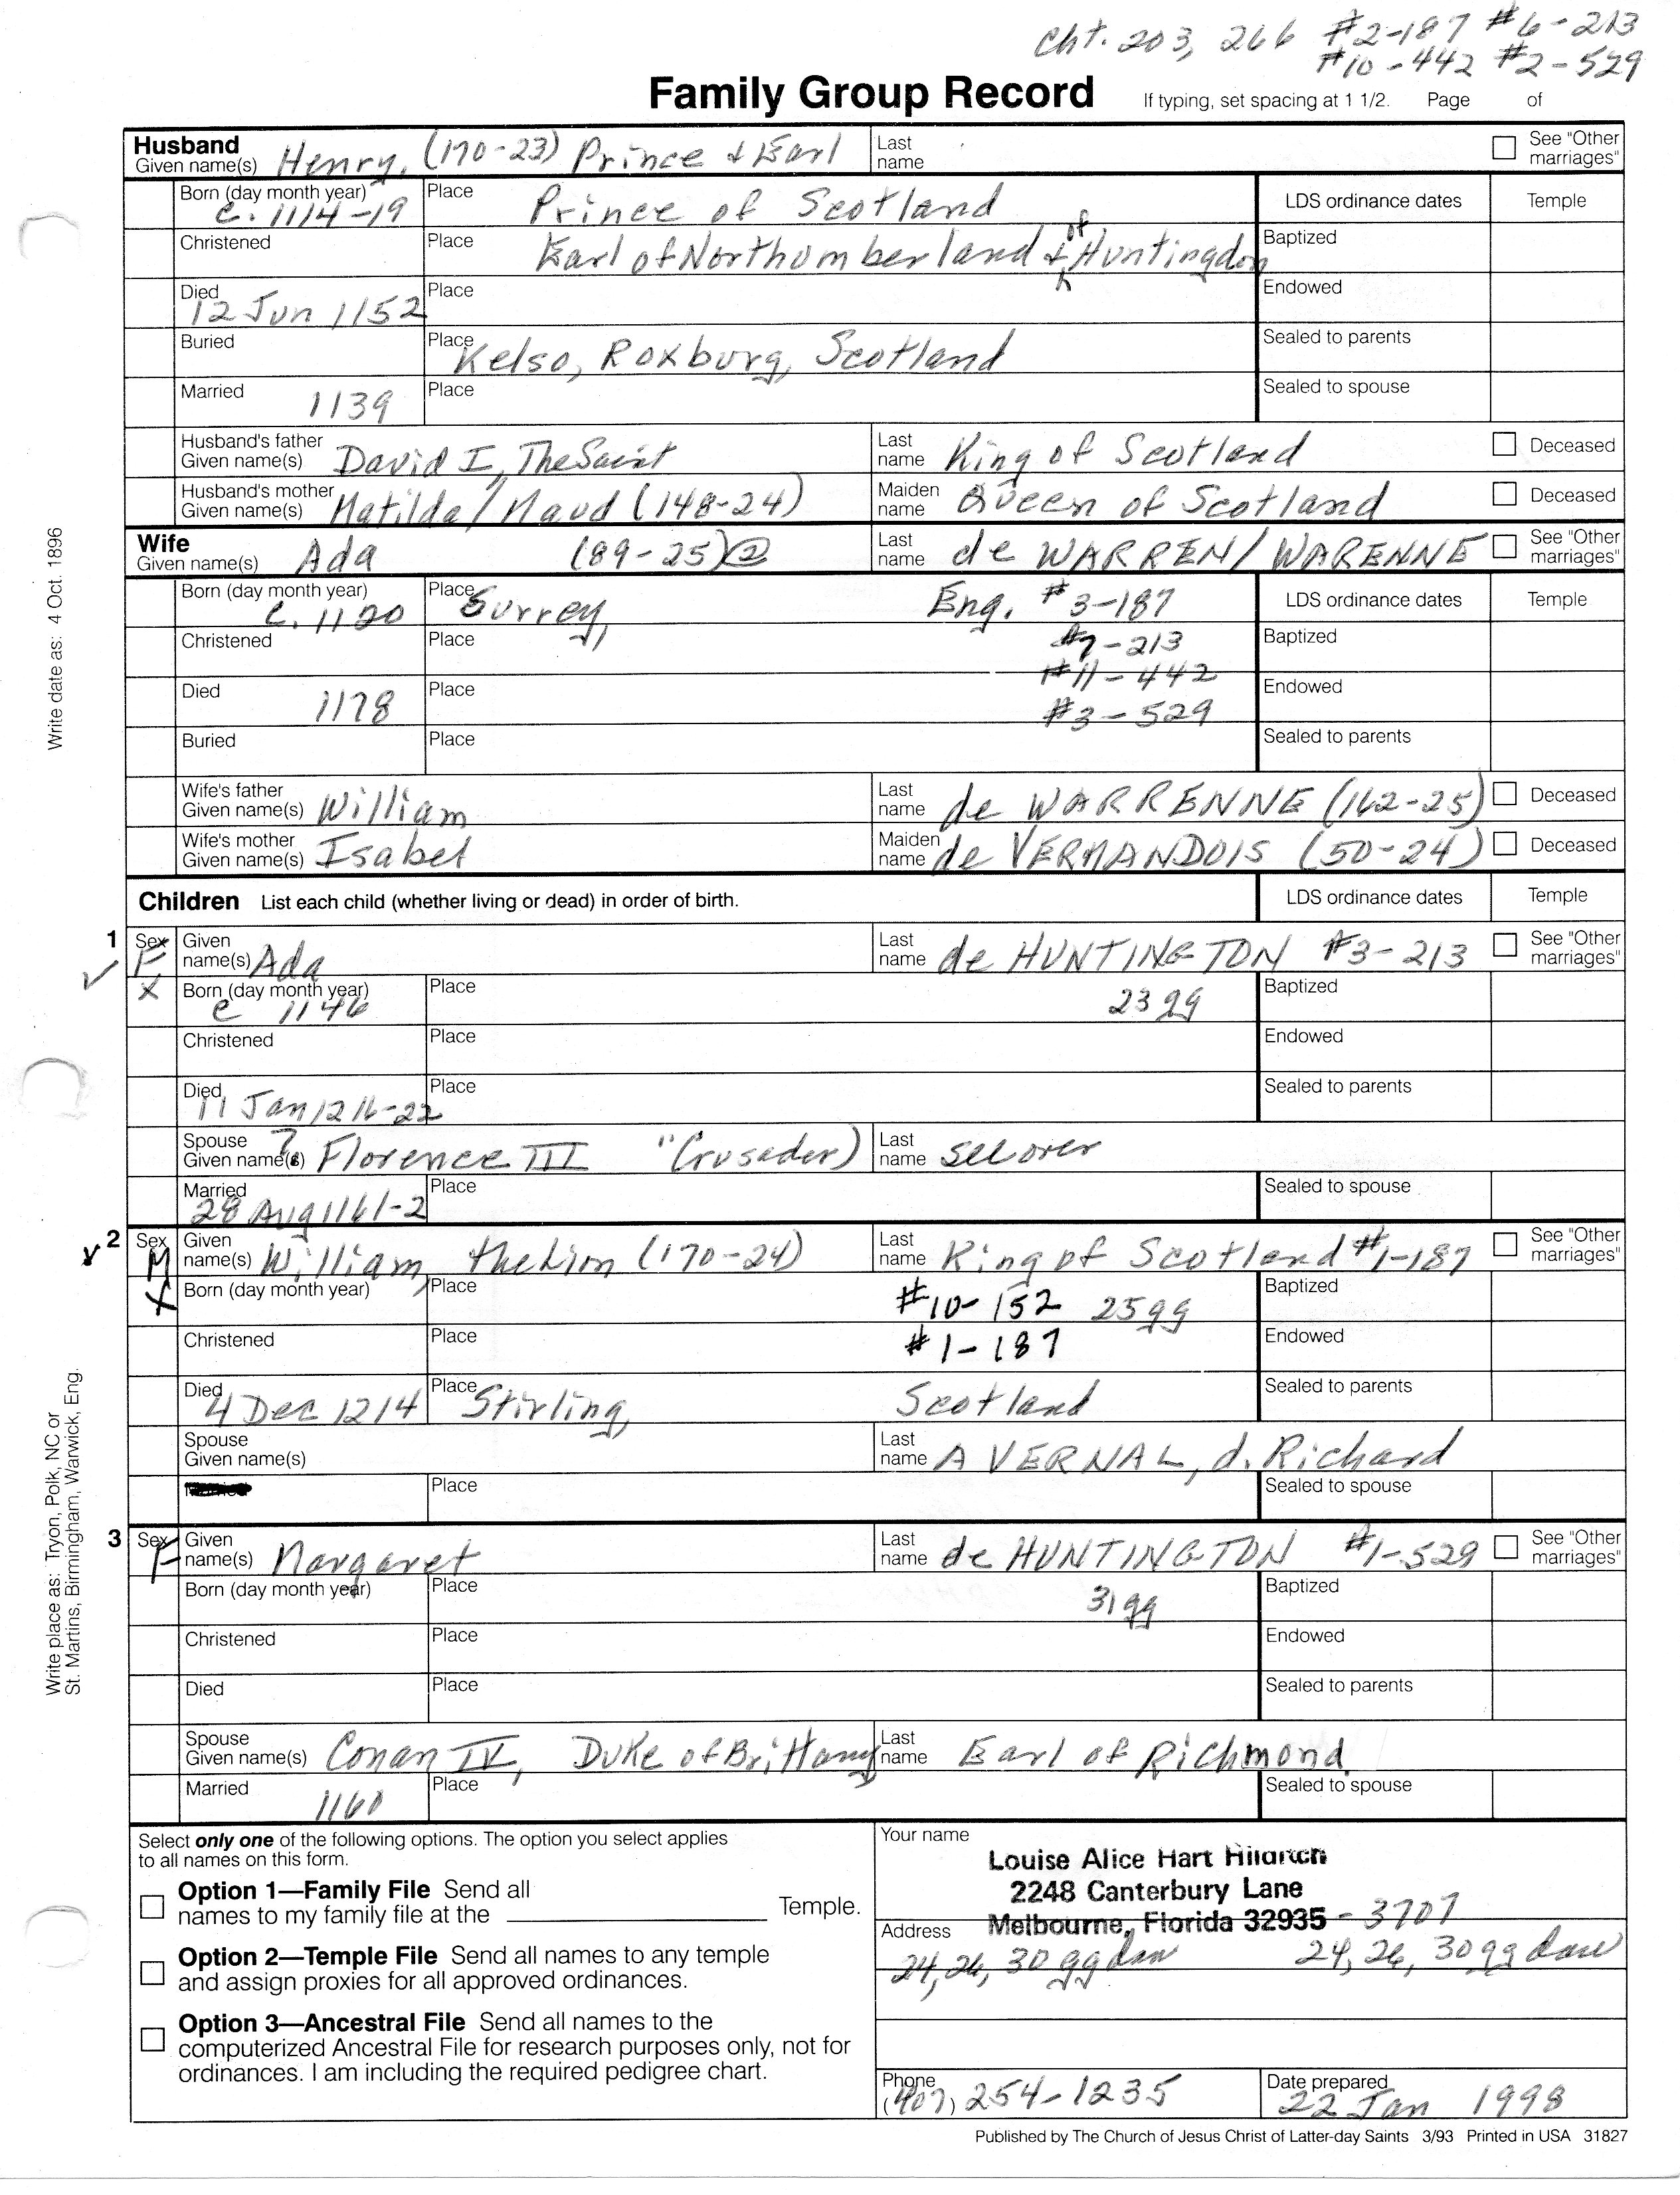 Cht. 203, 266 #2-187 #6-213
#10-442 #2-529
Family Group Record If typing, set spacing at 1 1/2. Page of
Husband
Given name(s) Henry, (170-23) Prince & Earl Last name See "Other marriages"
Born (day month year) c. 1114-19 Place Prince of Scotland LDS ordinance dates Temple
Christened Place Earl of Northumberland & of Huntingdon Baptized
Died 12 Jun 1152 Place Endowed
Buried Place Kelso, Roxburg, Scotland Sealed to parents
Married 1139 Place Sealed to spouse
Husband's father Given name(s) David I, The Saint Last name King of Scotland Deceased
Husband's mother Given name(s) Matilda/Maud (148-24) Maiden name Queen of Scotland Deceased
Wife
Given name(s) Ada (89-25) 2 Last name de WARREN/WARENNE See "Other marriages"
Born (day month year) c. 1120 Place Surrey, Eng. #3-187 LDS ordinance dates Temple
Christened Place #7-213 Baptized
#11-442
Died 1178 Place #3-529 Endowed
Buried Place Sealed to parents
Wife's father Given name(s) William Last name de WARRENNE (162-25) Deceased
Wife's mother Given name(s) Isabel Maiden name de VERMANDOIS (50-24) Deceased
Children List each child (whether living or dead) in order of birth. LDS ordinance dates Temple
1 Sex F Given name(s) Ada Last name de HUNTINGTON #3-213 See "Other marriages"
X Born (day month year) c 1146 Place 23gg Baptized
Christened Place Endowed
Died 11 Jan 1216-22 Place Sealed to parents
Spouse Given name(s) ? Florence III "Crusader) Last name see over
Married 28 Aug 1161-2 Place Sealed to spouse
2 Sex M Given name(s) William, the Lion (170-24) Last name King of Scotland #1-187 See "Other marriages"
X Born (day month year) Place #10-152 25gg Baptized
Christened Place #1-187 Endowed
Died 4 Dec 1214 Place Stirling, Scotland Sealed to parents
Spouse Given name(s) Last name AVERNAL, d. Richard
Place Sealed to spouse
3 Sex F Given name(s) Margaret Last name de HUNTINGTON #1-529 See "Other marriages"
Born (day month year) Place 31gg Baptized
Christened Place Endowed
Died Place Sealed to parents
Spouse Given name(s) Conan IV, Duke of Brittany Last name Earl of Richmond
Married 1160 Place Sealed to spouse
Select only one of the following options. The option you select applies
to all names on this form.
Option 1—Family File Send all
names to my family file at the Temple.
Option 2—Temple File Send all names to any temple
and assign proxies for all approved ordinances.
Option 3—Ancestral File Send all names to the
computerized Ancestral File for research purposes only, not for
ordinances. I am including the required pedigree chart.
Your name
Louise Alice Hart
2248 Canterbury Lane
Address Melbourne, Florida 32935-3707
24, 26, 30 gg dau 24, 26, 30 gg dau
Phone (407) 254-1235 Date prepared 22 Jan 1998
Published by The Church of Jesus Christ of Latter-day Saints 3/93 Printed in USA 31827
Write date as: 4 Oct. 1896
Write place as: Tryon, Polk, NC or
St. Martins, Birmingham, Warwick, Eng.